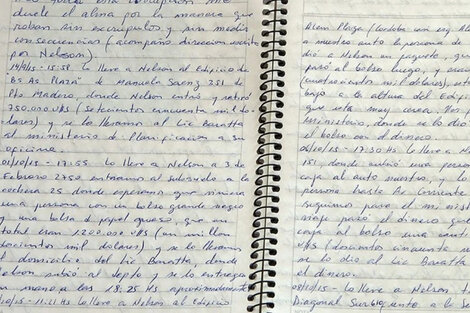 duele el alma por la manera que
roban sin escrupulos y sin medir
consecuencias (acompaño direccion escrita
por Nelson).
15:58 Lo lleve a Nelson al Edificio de
"Bs As Plaza" de Manuela Saenz 351 de
Pto Madero, donde Nelson subio y retiró
750.000 U$S (setecientos cincuenta mil do-
lares) y se lo llevamos al Lic Baratta
al ministerio de Planificacion a su
oficina.
01/10/15 - 17:55 Lo lleve a Nelson a 3 de
Febrero 2750 entramos al subsuelo a la
cochera 25 donde esperamos que viniera
una persona con un bolso grande negro
y una bolsa d papel grueso que en
total eran 1200.000 U$S (un millon
doscientos mil dolares) y se lo llevamos
al domicilio del Lic Baratta, donde
Nelson subió al depto y se lo entregó
en mano a las 18:25 Hs aproximadamente
/10/15 - 11:21 Hs Lo lleve a Nelson al Edificio
Alem Plaza (
a nuestro auto la persona de
dio a Nelson un paquete, que
puso al bolso luego, y
bajo a la altura del Edif
que esta muy cerca
ministerio, donde se lo dio
el bolso con el dinero.
06/10/15 - 17:30 Hs Lo lleve a Nelson
151, donde subió una persona
caja al auto nuestro, y lo
persona hasta Av Corrientes
seguimos para el mi
viaje pasó el dinero que
caja al bolso una
U$S (doscientos cincuenta
se lo dio al Lic Baratta
el dinero.
08/10/15 - Lo lleve a Nelson
Diagonal Sur 610, a la